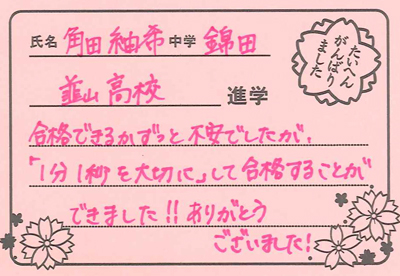 氏名 角田 紬希 中学 錦田
たいへん
がんばり
ました
韮山高校 進学
合格できるかずっと不安でしたが、
「1分1秒を大切に」して合格することが
できました!!ありがとう
ございました!